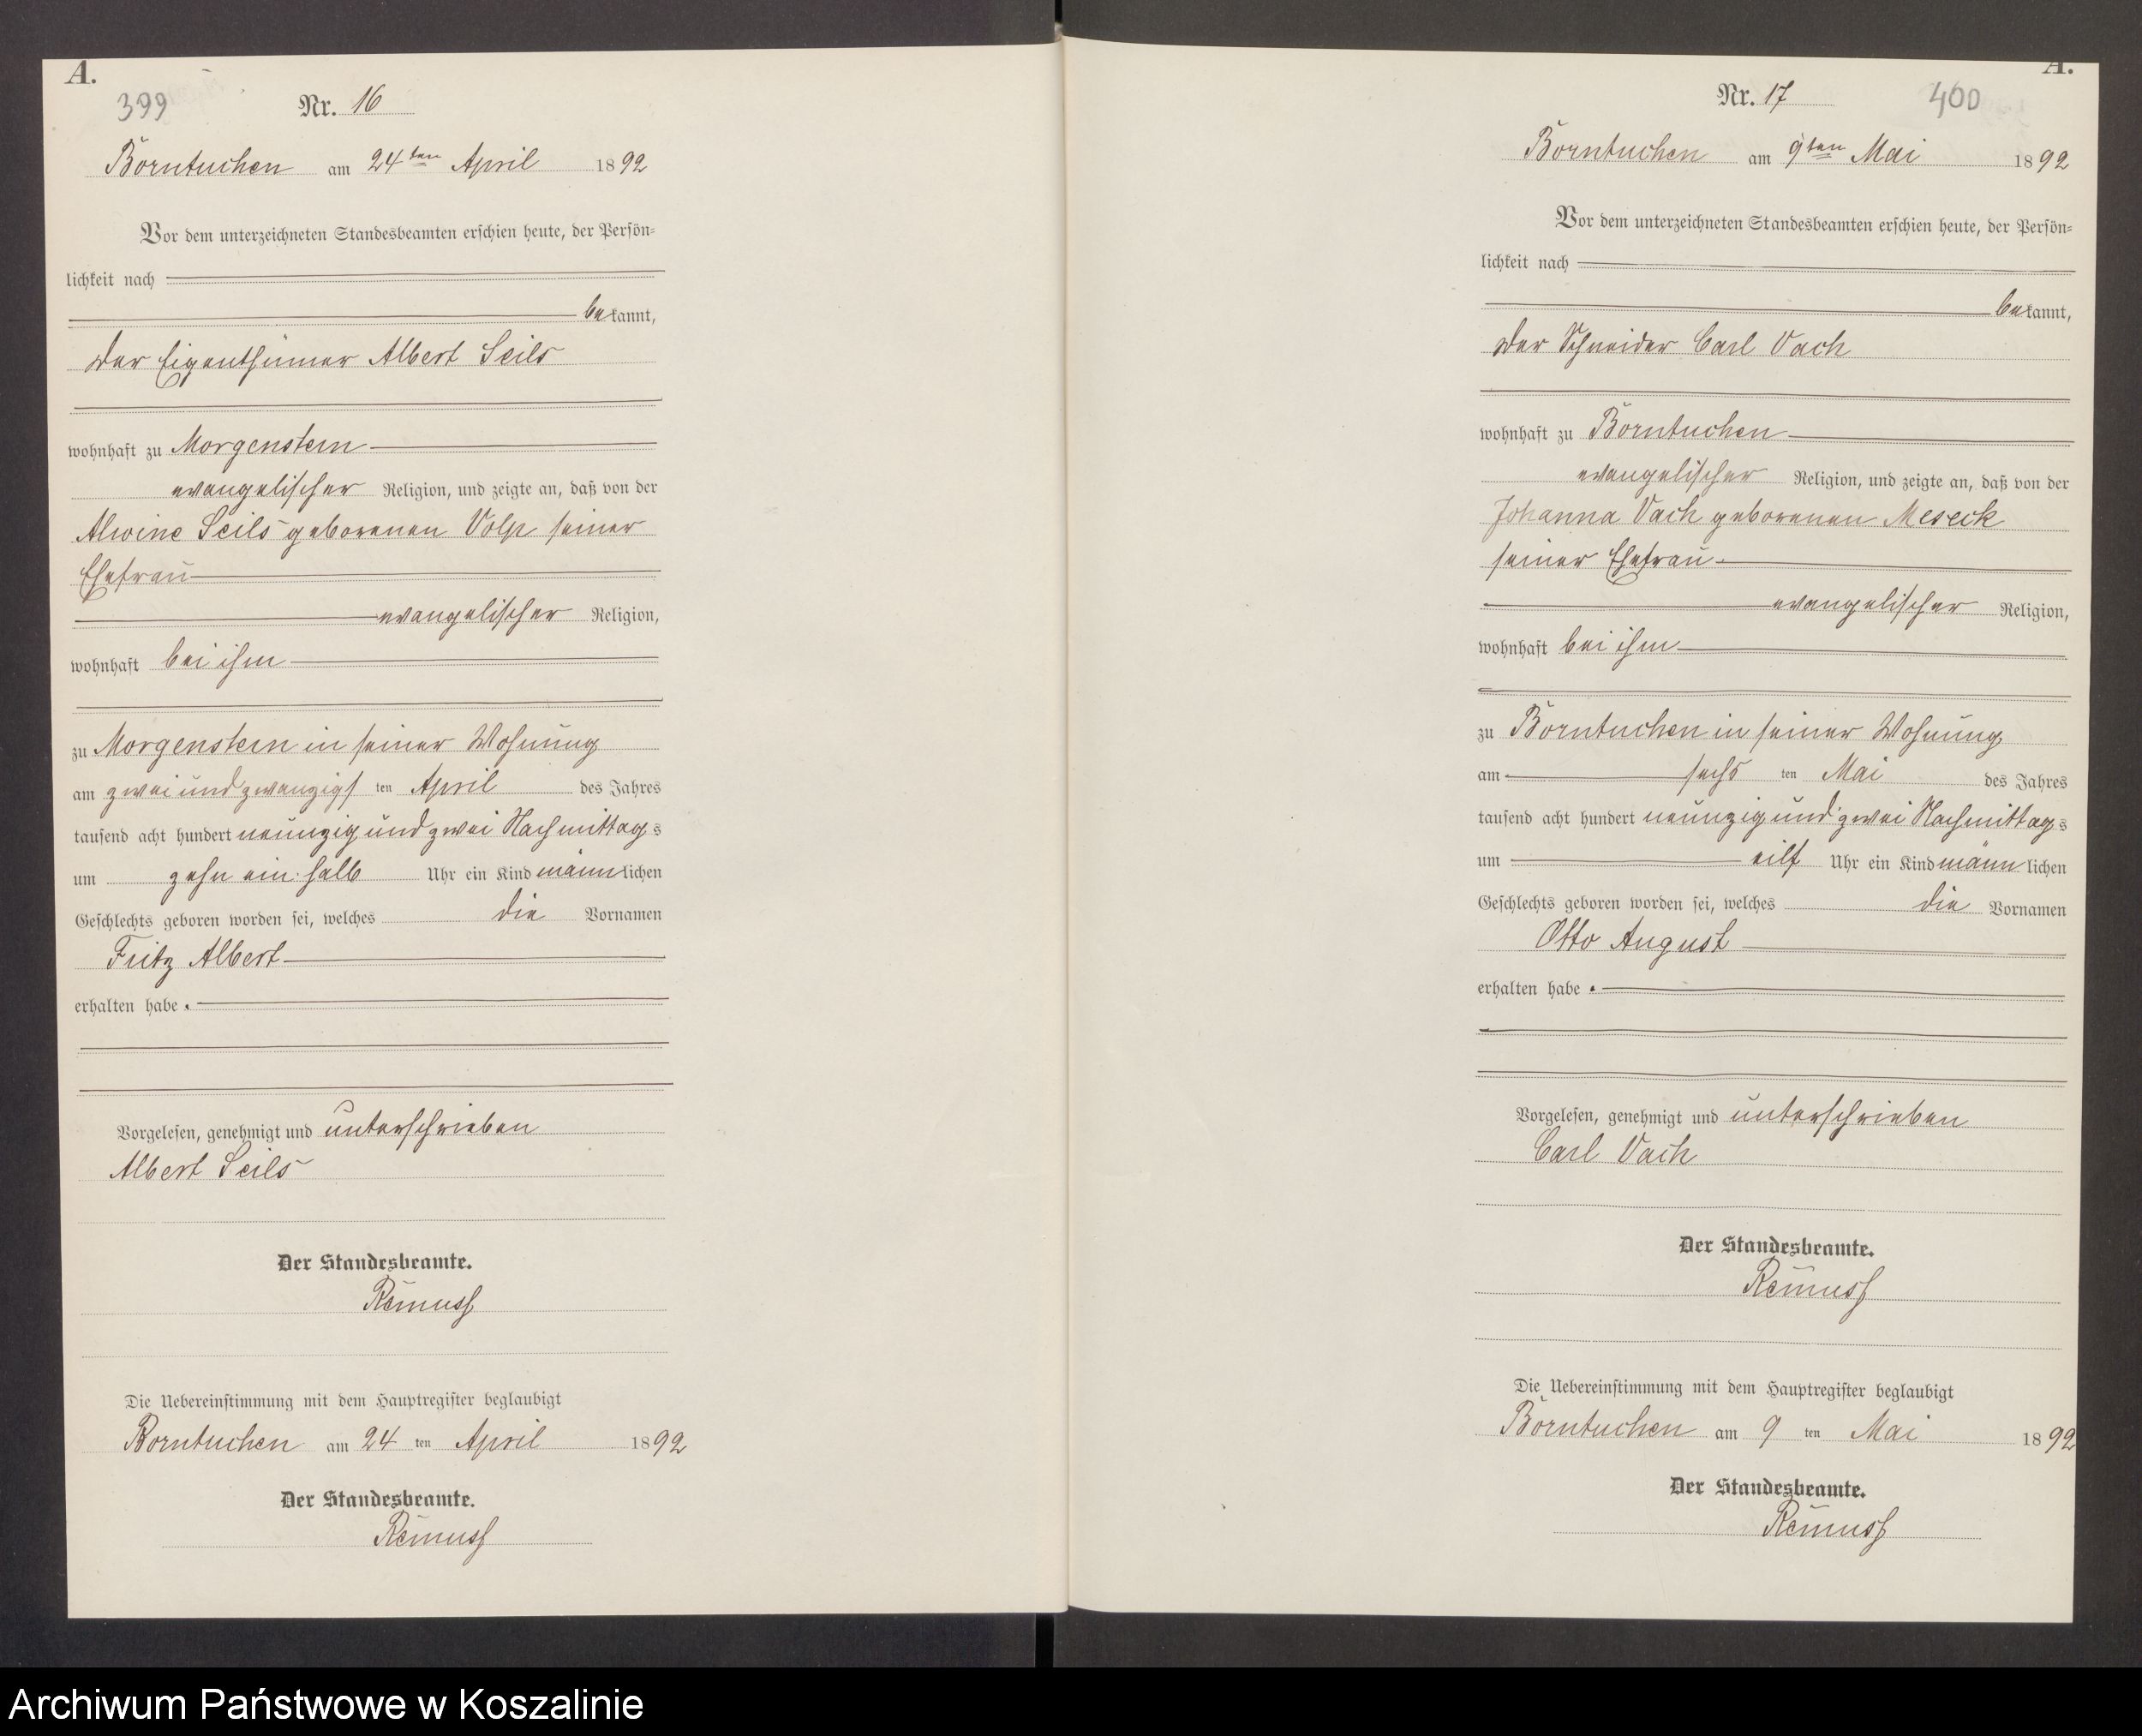 A.
399
Nr. 16
Borntuchen am 24ten April 1892
Vor dem unterzeichneten Standesbeamten erschien heute, der Persön-
lichkeit nach
bekannt,
der Eigenthümer Albert Seils
wohnhaft zu Morgenstern
evangelischer Religion, und zeigte an, daß von der
Alwine Seils geborenen Volp seiner
Ehefrau
evangelischer Religion,
wohnhaft bei ihm
zu Morgenstern in seiner Wohnung
am zwei und zwanzigsten April des Jahres
tausend acht hundert neunzig und zwei Nachmittags
um zehn ein halb Uhr ein Kind männlichen
Geschlechts geboren worden sei, welches die Vornamen
Fritz Albert
erhalten habe.
Vorgelesen, genehmigt und unterschrieben
Albert Seils
Der Standesbeamte.
Remuss
Die Uebereinstimmung mit dem Hauptregister beglaubigt
Borntuchen am 24 ten April 1892
Der Standesbeamte.
Remuss
A.
Nr. 17
400
Borntuchen am 9ten Mai 1892
Vor dem unterzeichneten Standesbeamten erschien heute, der Persön-
lichkeit nach
bekannt,
der Schneider Carl Vach
wohnhaft zu Borntuchen
evangelischer Religion, und zeigte an, daß von der
Johanna Vach geborenen Meseck
seiner Ehefrau
evangelischer Religion,
wohnhaft bei ihm
zu Borntuchen in seiner Wohnung
am sechs ten Mai des Jahres
tausend acht hundert neunzig und zwei Nachmittags
um eilf Uhr ein Kind männlichen
Geschlechts geboren worden sei, welches die Vornamen
Otto August
erhalten habe.
Vorgelesen, genehmigt und unterschrieben
Carl Vach
Der Standesbeamte.
Remuss
Die Uebereinstimmung mit dem Hauptregister beglaubigt
Borntuchen am 9 ten Mai 1892
Der Standesbeamte.
Remuss
Archiwum Państwowe w Koszalinie